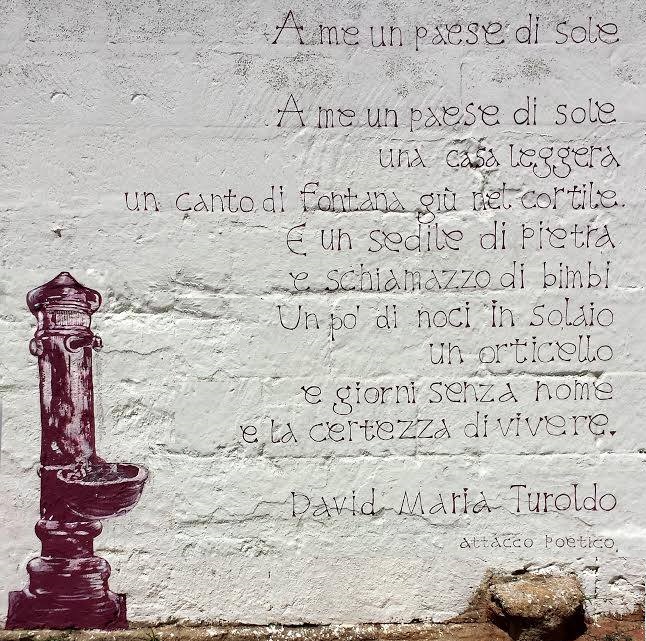 A me un paese di sole
A me un paese di sole
una casa leggera
un canto di fontana giù nel cortile.
E un sedile di pietra
e schiamazzo di bimbi
Un po' di noci in solaio
un orticello
e giorni senza nome
e la certezza di vivere.
David Maria Turoldo
attacco poetico